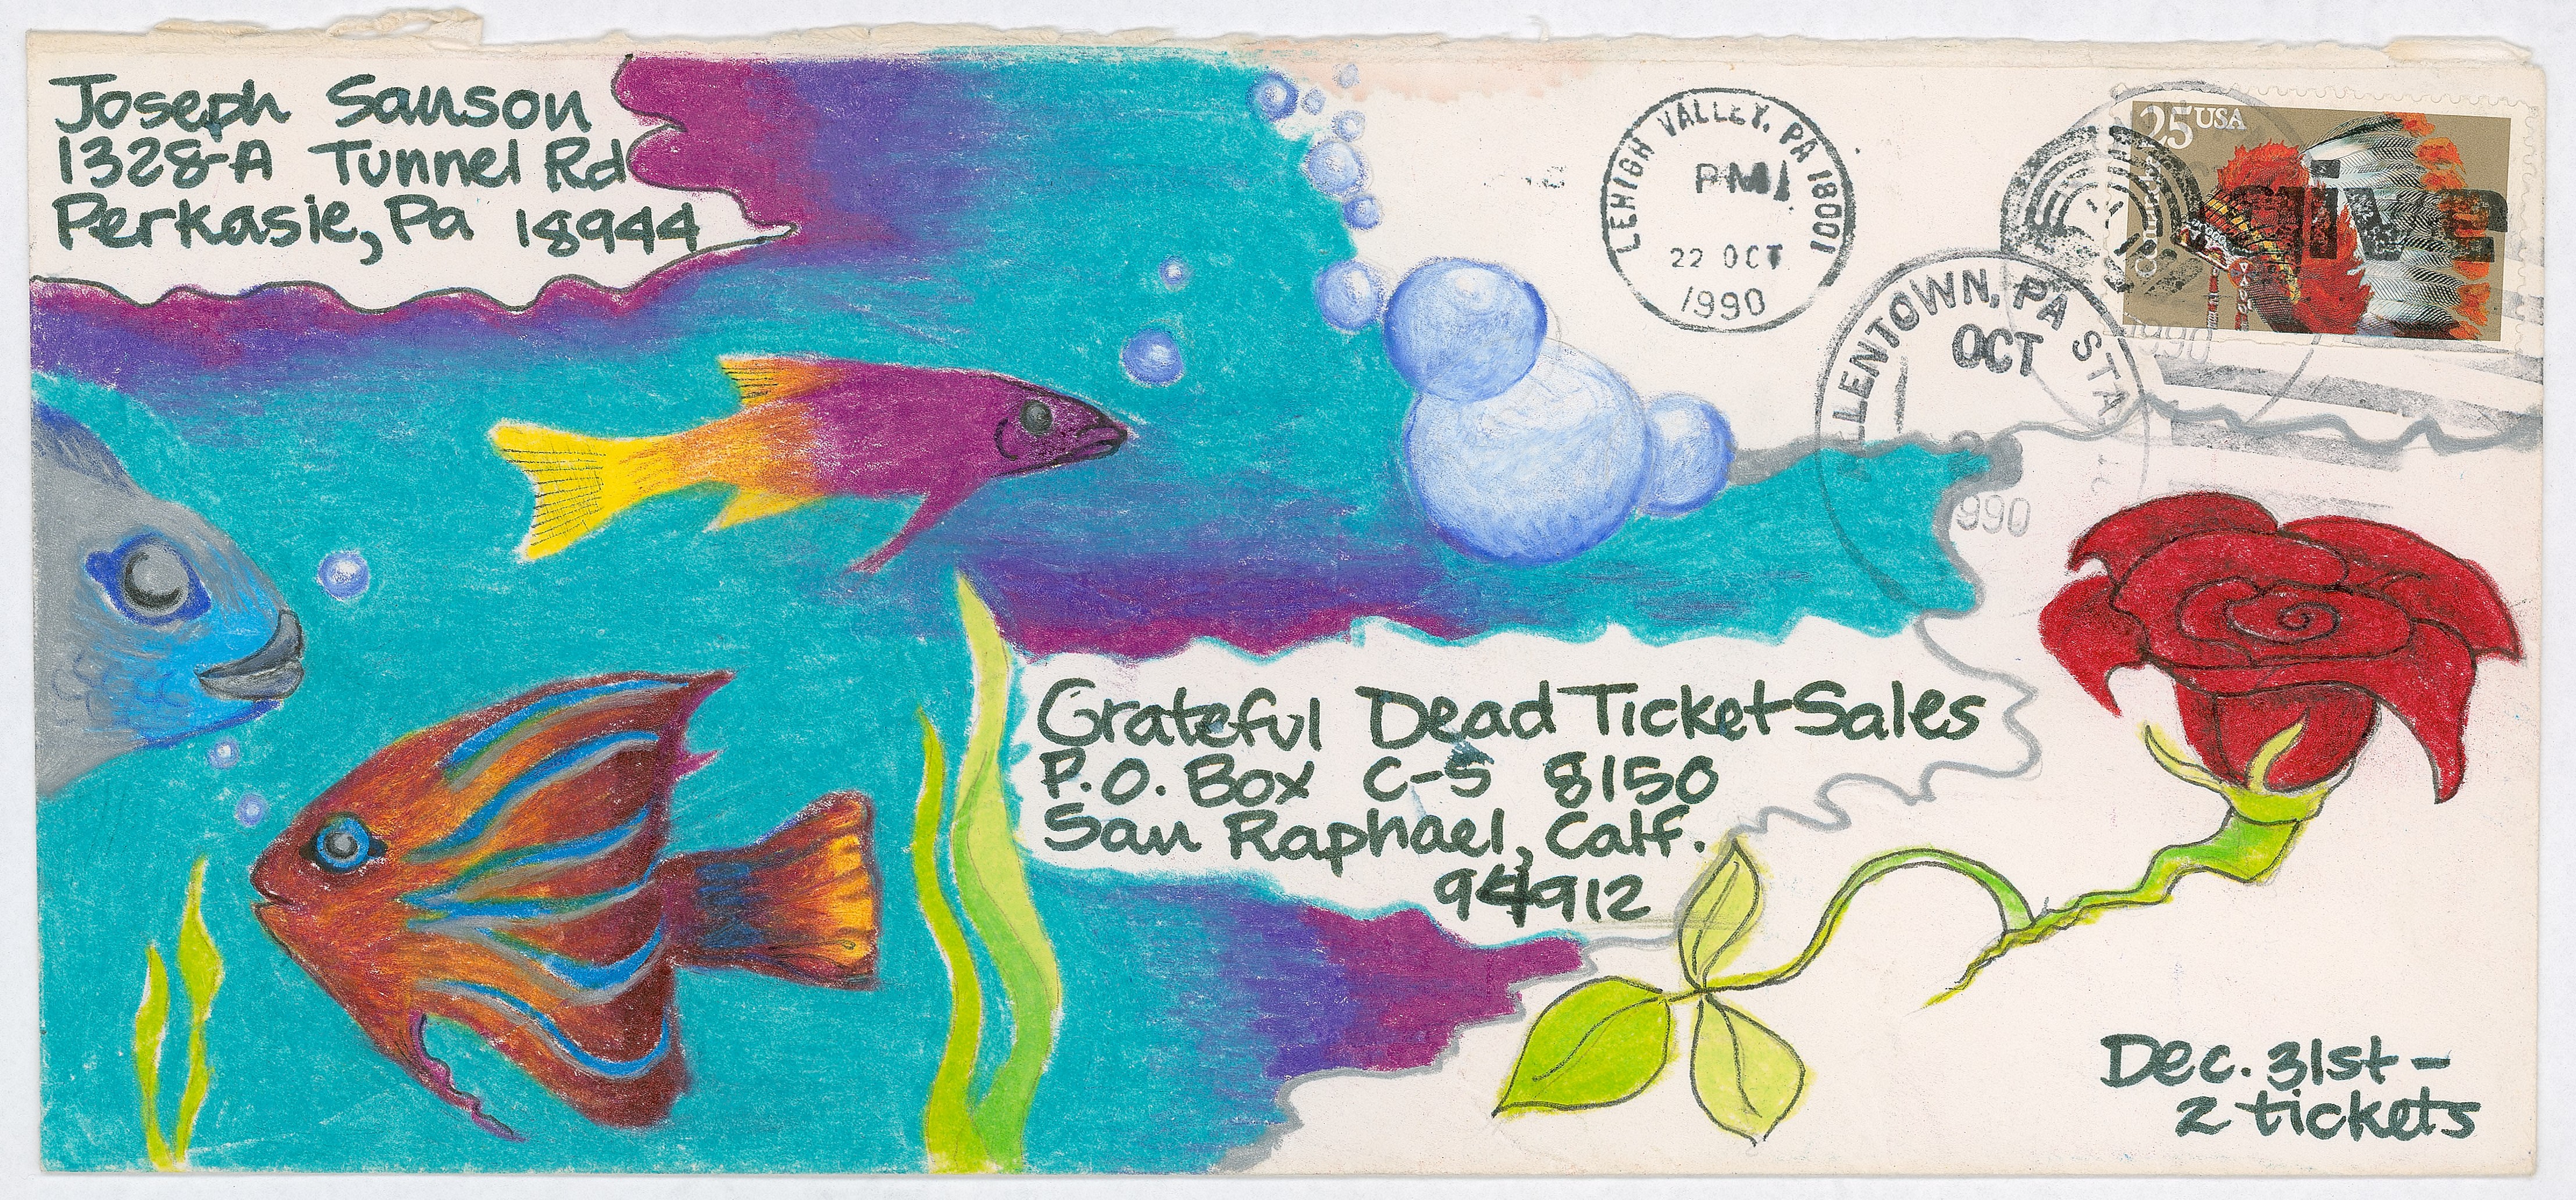 Joseph Sanson
1328-A Tunnel Rd
Perkasie, Pa 18944
LEHIGH VALLEY, PA 18001
PM
22 OCT
1990
25 USA
Give
LLENTOWN, PA STA
OCT
1990
990
Grateful Dead Ticket Sales
P.O. Box C-S 8150
San Raphael, Calf.
94912
Dec. 31st -
2 tickets